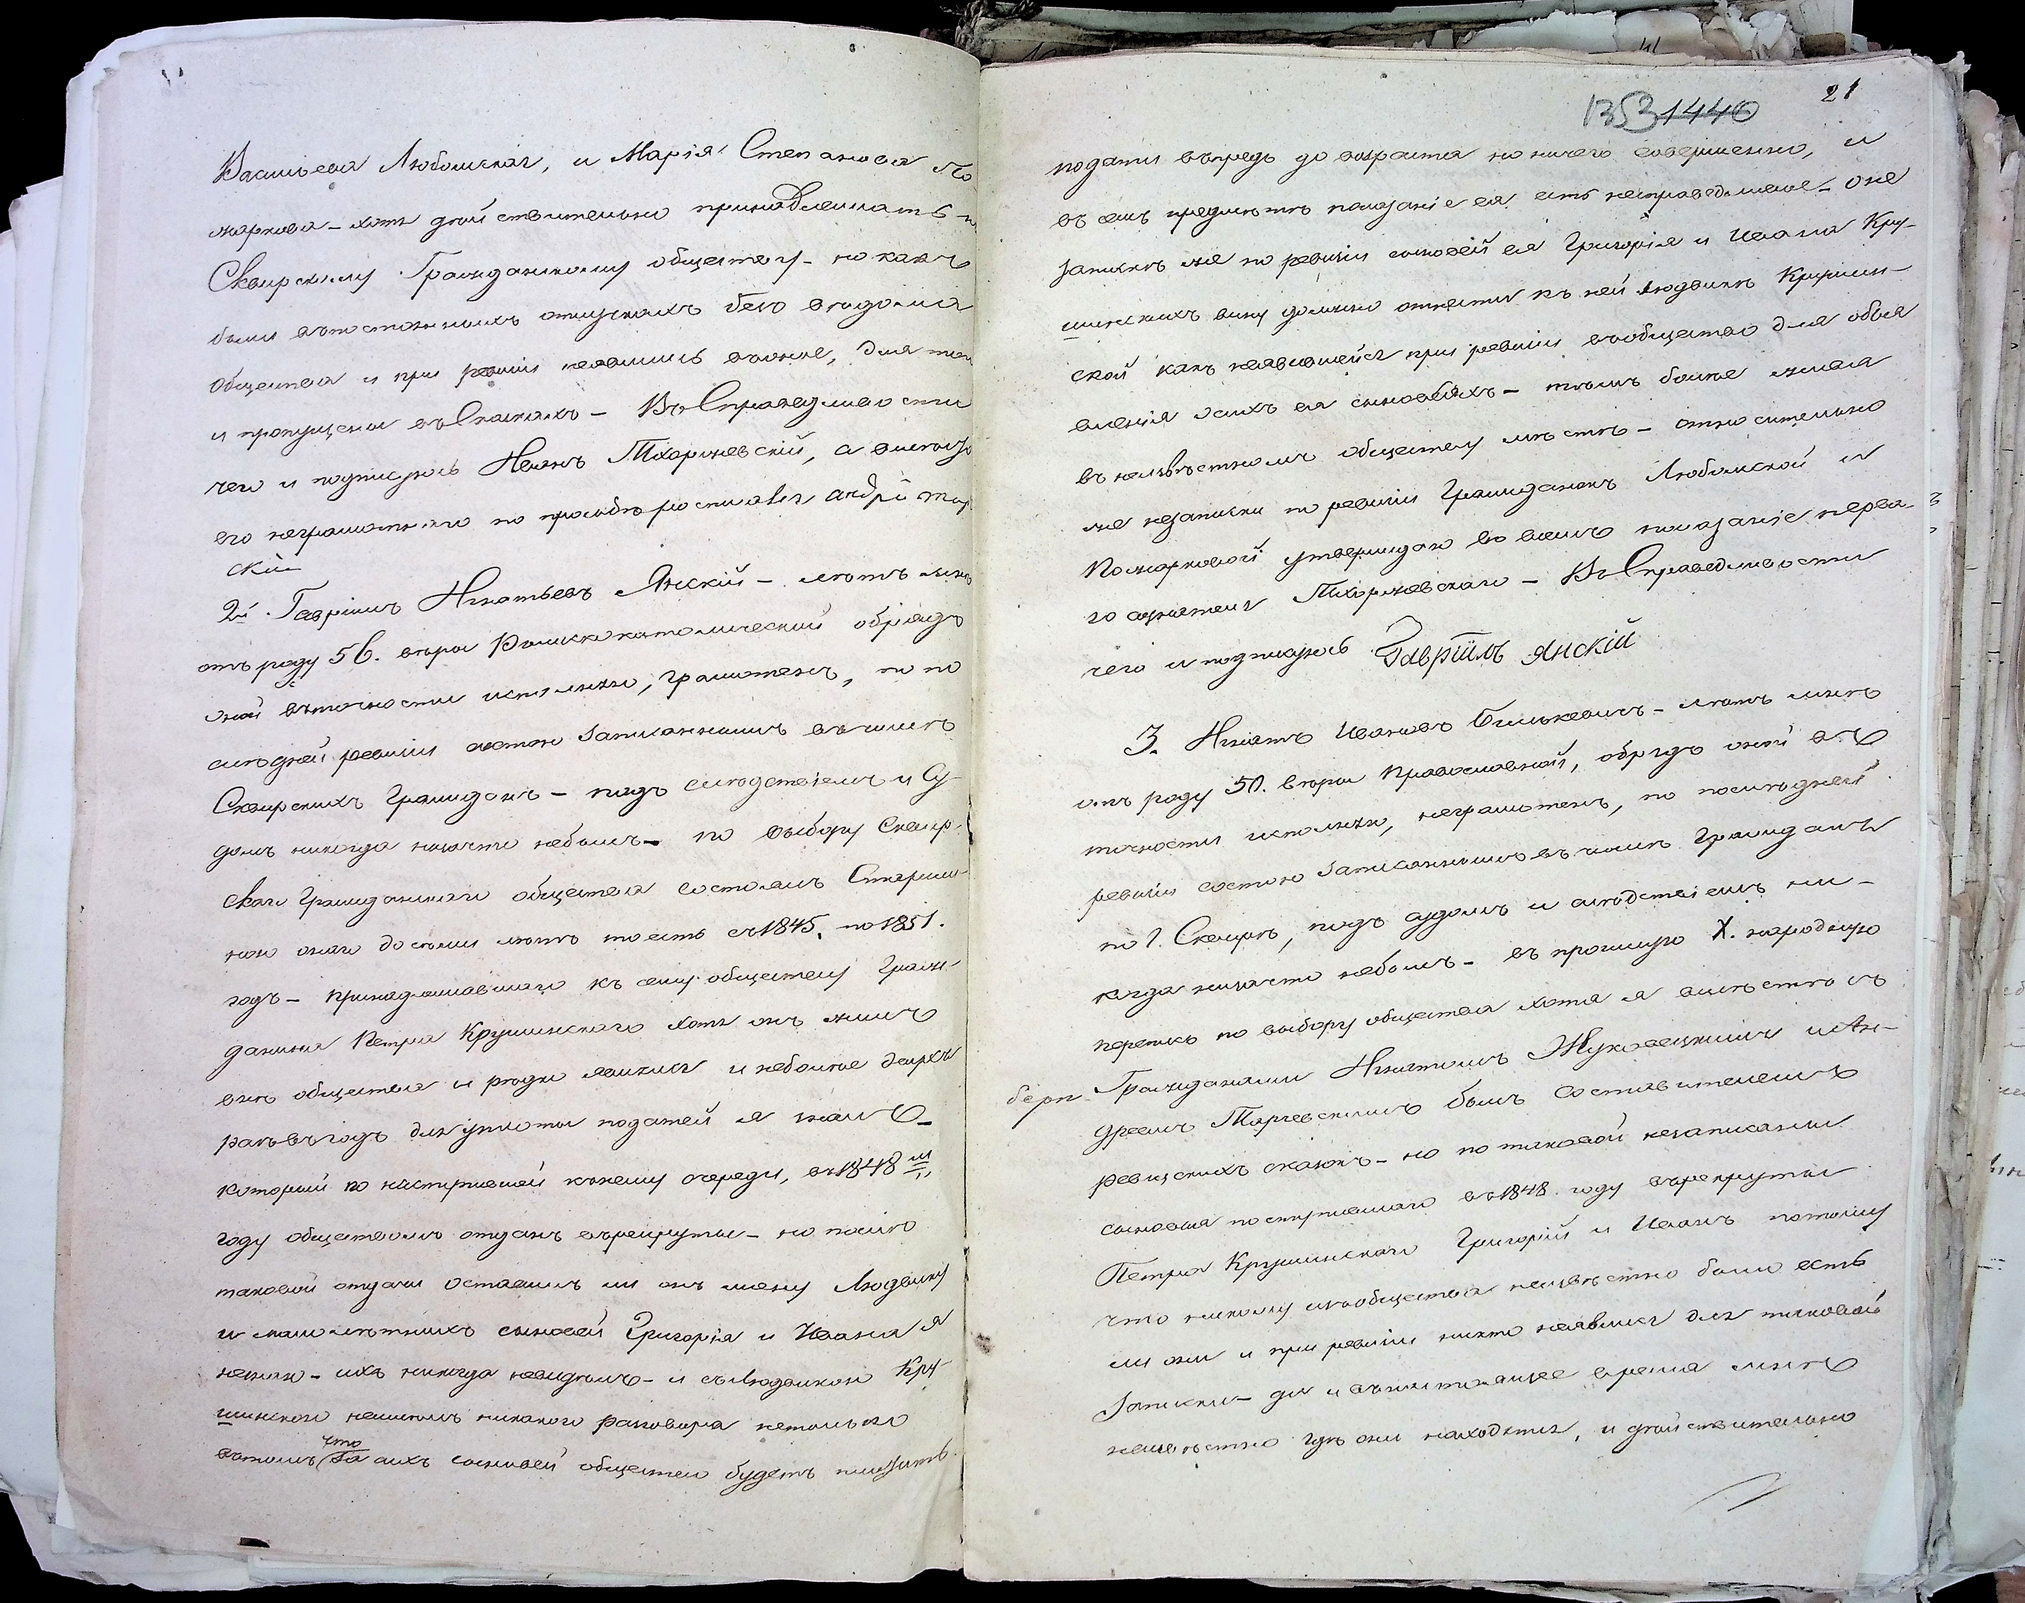 Васильева Любомская, и Марія Степанова По
жаркова – хотя действительно принадлежатъ къ
Сквирскому Гражданскому обществу – но какъ
были въ постоянныхъ отлучкахъ безъ вѣдома
общества и при ревизіи неявились въ оное, для того
и пропущены въ Сказкахъ – Въ Справедливости
чего и подписуюсь Иванъ Тхоржевскій, а вмѣсто
его неграмотнаго по прозьбѣ росписался андрій
скій
2й. Гавріилъ Игнатьевъ Янскій – лѣтъ мнѣ
отъ роду 56. вѣры Римскокатолической обрядъ
оной въ точности исполняю, грамотенъ, по по
слѣдней ревизіи состою записаннымъ въ числѣ
Сквирскихъ Гражданъ – подъ слѣдствіемъ и Су
домъ никогда низачто небылъ – по выбору Сквир
скаго Гражданскаго общества состоялъ Старши
ною онаго до семи лѣтъ то есть съ 1845. по 1851.
годъ – принадлежавшаго къ сему обществу Граж
данина Петра Крушинскаго хотя онъ жилъ
внѣ общества и рѣдко являлся и неболѣе
разъ въ годъ для уплаты податей я зналъ –
который по наступившей къ нему очереди, въ 1848 м
году обществомъ отданъ въ рекруты – но послѣ
таковой отдачи оставилъ ли онъ жену Людвику
и малолѣтнихъ сыновей Григорія и Ивана я
незнаю – ихъ никогда невидѣлъ – и съ Людвикою Кру
шинскою неимѣлъ никакого разговора нетолько
въ томъ что за ихъ сыновей общество будетъ платить
1353 1440
21
подати впредь до возраста но ничего совершенно, и
въ семъ предметѣ показаніе ея есть несправедливое – о не
запискѣ же по ревизіи сыновей ея Григорія и Ивана Кру-
шинскихъ вину должно отнести къ ней Людвикѣ Крушин-
ской какъ неявившейся при ревизіи въ общество для объя
вленія о сихъ ея сыновьяхъ – тѣмъ болѣе жила
въ неизвѣстномъ обществу мѣстѣ – относительно
же незаписки по ревизіи Гражданокъ Любомской и
Пожарковой утверждаю во всемъ показаніе перва
го Тхоржевскаго – Въ Справедливости
чего и подписуюсь Гавріилъ янскій
3. Игнатъ Ивановъ Билькевичъ – лѣтъ мнѣ
отъ роду 50. вѣры православной, обрядъ оной въ
точности исполняю, неграмотенъ, по послѣдней
ревизіи состою записаннымъ въ числѣ Гражданъ
по г. Сквирѣ, подъ судомъ и слѣдствіемъ ни-
когда низачто небылъ – въ прошлую X. народную
перепись по выбору общества хотя я вмѣстѣ съ
Гражданами Игнатомъ Жуковецкимъ и Ан-
дреемъ былъ Составителемъ
ревизскихъ сказокъ – но по таковой незаписаны
сыновья поступившаго въ 1848. году въ рекруты
Петра Крушинскаго Григорій и Иванъ потому
что никому изъ общества неизвѣстно было есть
ли они и при ревизіи никто неявился для таковой
Записки – да и въ настоящее время мнѣ
неизвѣстно гдѣ они находятся, и дѣйствительно